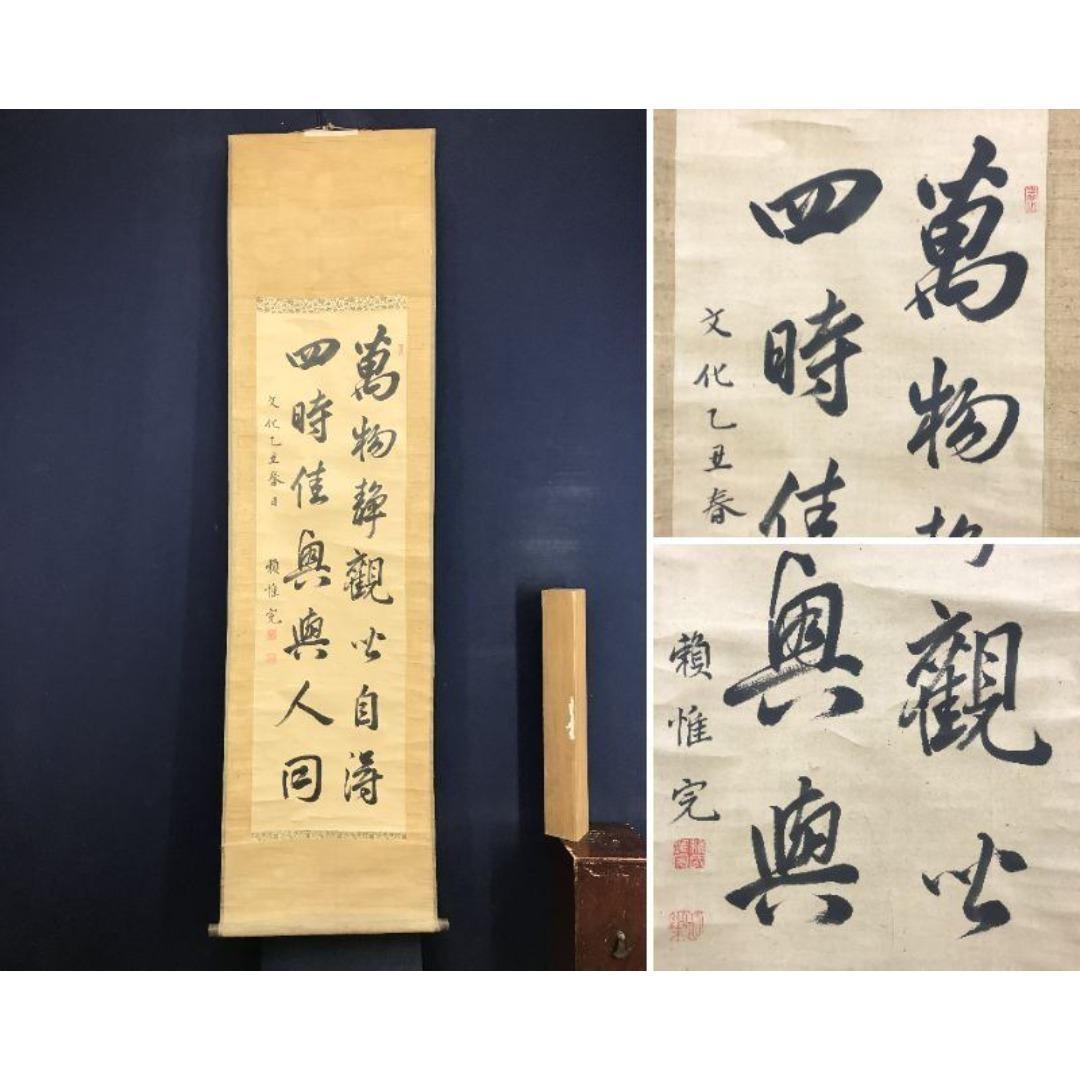 萬物静觀皆自得
四時佳興與人同
文化乙丑春日 賴惟完
萬物
四時佳
文化乙丑春
觀皆
興與
賴惟完